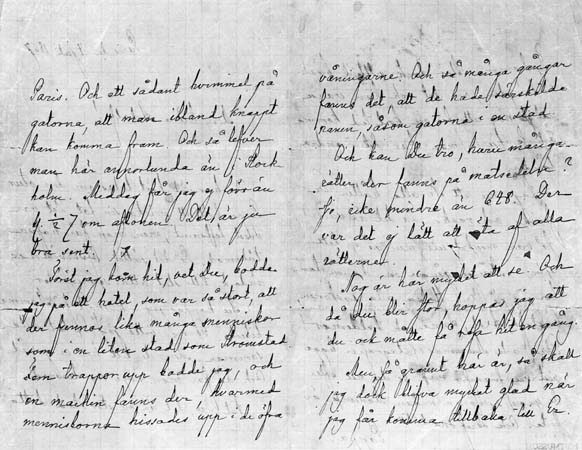 Paris. Och ett sådant hvimmel på
gatorna, att man ibland knappt
kan komma fram. Och så lefver
man här annorlunda än i Stock
holm. Middag får jag ej förr än
½ 7 om aftonen. Det är ju
bra sent,
Först jag kom hit, vet du, bodde
jag på ett hotel, som var så stort, att
der funnos lika många menniskor
som i en liten stad som Strömstad
Fem trappor upp bodde jag, och
en maskin fanns der, hvarmed
menniskorna hissades upp i de öfra
våningarne. Och så många gångar
fanns det, att de hade särskilda
namn, såsom gatorna i en stad
Och kan du tro, huru många
rätter der fanns på matsedeln?
Jo, icke mindre än 648. Der
var det ej lätt att äta af alla
rätterne.
Nog är här mycket att se. Och
då du blir stor, hoppas jag att
du ock måtte få resa hit en gång.
Men så grannt här är, så skall
jag dock blifva mycket glad när
jag får komma tillbaka till Er.